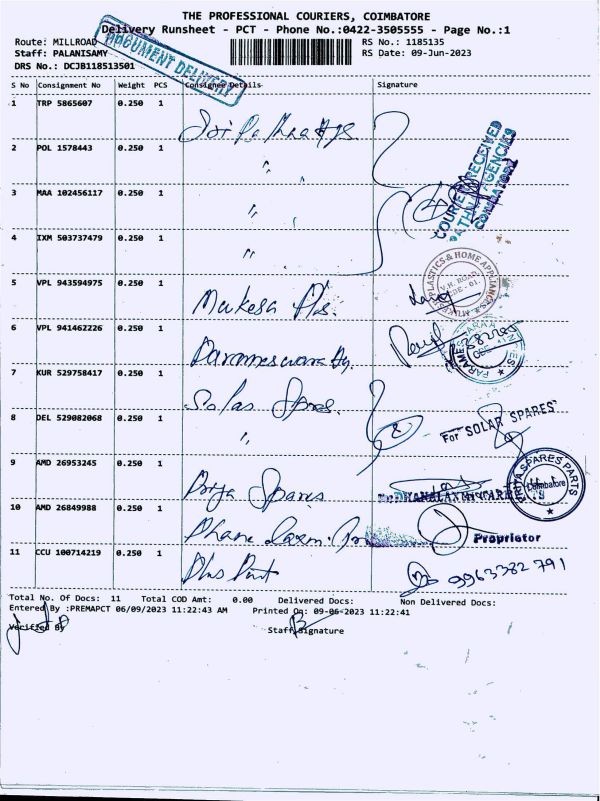 THE PROFESSIONAL COURIERS, COIMBATORE
Delivery Runsheet - PCT - Phone No.:0422-3505555 - Page No.:1
Route: MILLROAD
RS No.: 1185135
Staff: PALANISAMY
RS Date: 09-Jun-2023
DRS No.: DCJB118513501
DOCUMENT DELIVERY
S No Consignment No Weight PCS Consignee Details Signature
1 TRP 5865607 0.250 1
2 POL 1578443 0.250 1 "
COURIER RECEIVED
AGENCIES
COIMBATORE
3 MAA 102456117 0.250 1 "
4 IXM 503737479 0.250 1 "
5 VPL 943594975 0.250 1
PLASTICS & HOME APPLIANCES
V.H. ROAD
6 VPL 941462226 0.250 1
7 KUR 529758417 0.250 1 Solar Spares
8 DEL 529082068 0.250 1 " 2
For "SOLAR SPARES"
9 AMD 26953245 0.250 1 Priya Spares
PRIYA SPARES PARTS
Coimbatore
10 AMD 26849988 0.250 1
Proprietor
11 CCU 100714219 0.250 1 9963382 791
Total No. Of Docs: 11 Total COD Amt: 0.00 Delivered Docs: Non Delivered Docs:
Entered By :PREMAPCT 06/09/2023 11:22:43 AM Printed On: 09-06-2023 11:22:41
Verified By
Staff Signature